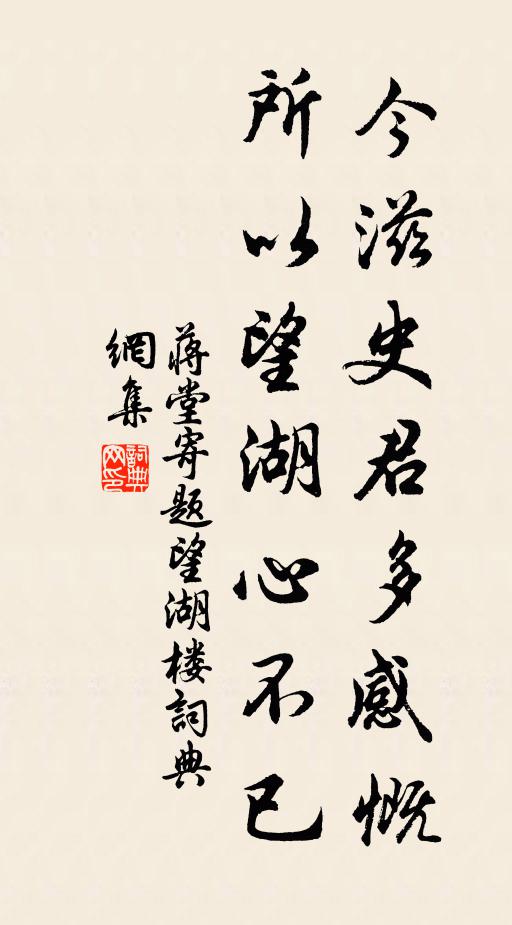 今滋史君多感慨
所以望湖心不已
蔣堂寄題望湖楼詞典
網集
詞典
网印